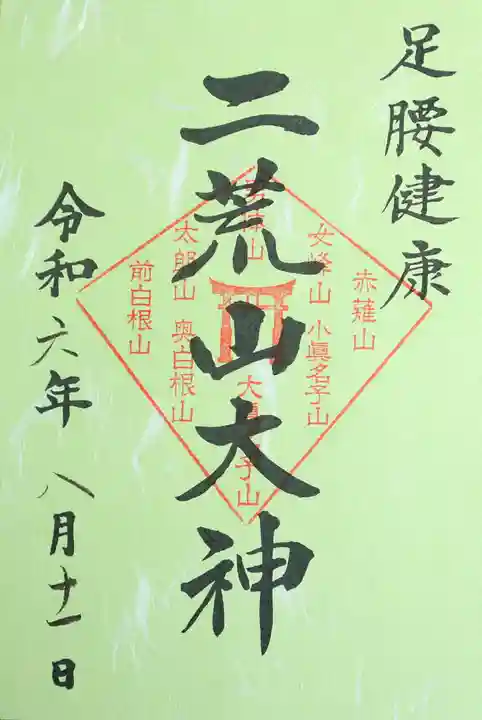 足腰健康
二荒山大神
令和六年 八月十一日
赤薙山
女峰山 小眞名子山
太郎山 奥白根山
前白根山